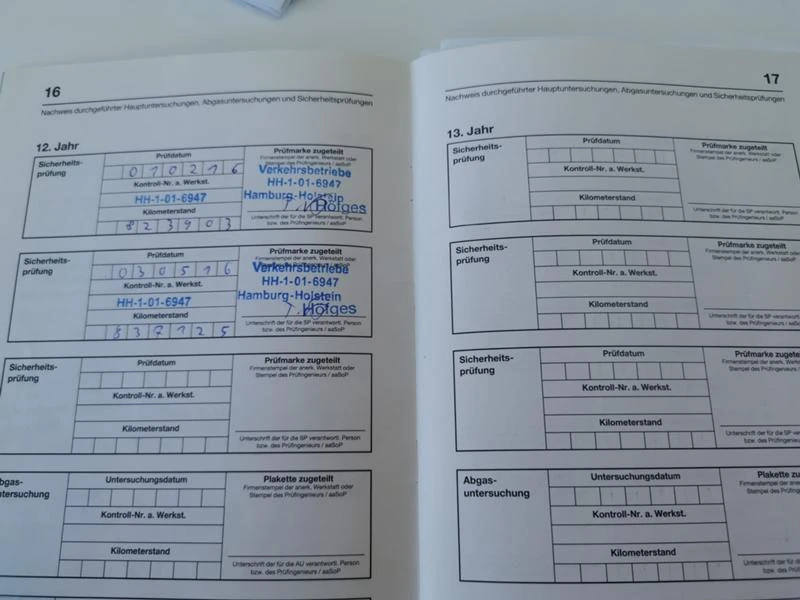 16
Nachweis durchgeführter Hauptuntersuchungen, Abgasuntersuchungen und Sicherheitsprüfungen
12. Jahr
Sicherheits-
prüfung
Prüfdatum
010216
Kontroll-Nr. a. Werkst.
HH-1-01-6947
Kilometerstand
823903
Prüfmarke zugeteilt
Firmenstempel der anerk. Werkstatt oder
Stempel des Prüfingenieurs / aaSoP
Verkehrsbetriebe
HH-1-01-6947
Hamburg-Holstein
Holges
Unterschrift der für die SP verantwortl. Person
bzw. des Prüfingenieurs / aaSoP
Sicherheits-
prüfung
Prüfdatum
030516
Kontroll-Nr. a. Werkst.
HH-1-01-6947
Kilometerstand
837125
Prüfmarke zugeteilt
Verkehrsbetriebe
HH-1-01-6947
Hamburg-Holstein
T. Holges
Unterschrift der für die SP verantwortl. Person
bzw. des Prüfingenieurs / aaSoP
Sicherheits-
prüfung
Prüfdatum
Kontroll-Nr. a. Werkst.
Kilometerstand
Prüfmarke zugeteilt
Firmenstempel der anerk. Werkstatt oder
Stempel des Prüfingenieurs / aaSoP
Unterschrift der für die SP verantwortl. Person
bzw. des Prüfingenieurs / aaSoP
Abgas-
untersuchung
Untersuchungsdatum
Kontroll-Nr. a. Werkst.
Kilometerstand
Plakette zugeteilt
Firmenstempel der anerk. Werkstatt oder
Stempel des Prüfingenieurs / aaSoP
Unterschrift der für die AU verantwortl. Person
bzw. des Prüfingenieurs / aaSoP
17
Nachweis durchgeführter Hauptuntersuchungen, Abgasuntersuchungen und Sicherheitsprüfungen
13. Jahr
Sicherheits-
prüfung
Prüfdatum
Kontroll-Nr. a. Werkst.
Kilometerstand
Prüfmarke zugeteilt
Firmenstempel der anerk. Werkstatt oder
Stempel des Prüfingenieurs / aaSoP
Unterschrift der für die SP verantwortl. Person
bzw. des Prüfingenieurs / aaSoP
Sicherheits-
prüfung
Prüfdatum
Kontroll-Nr. a. Werkst.
Kilometerstand
Prüfmarke zugeteilt
Firmenstempel der anerk. Werkstatt oder
Stempel des Prüfingenieurs / aaSoP
Unterschrift der für die SP verantwortl. Person
bzw. des Prüfingenieurs / aaSoP
Sicherheits-
prüfung
Prüfdatum
Kontroll-Nr. a. Werkst.
Kilometerstand
Prüfmarke
Firmenstempel der anerk.
Stempel des Prüfingenieurs
Unterschrift der für die SP
bzw. des Prüfingenieurs
Abgas-
untersuchung
Untersuchungsdatum
Kontroll-Nr. a. Werkst.
Kilometerstand
Plakette
Firmenstempel der
Stempel des Prüfingenieurs
Unterschrift der für die
bzw. des Prüfingenieurs